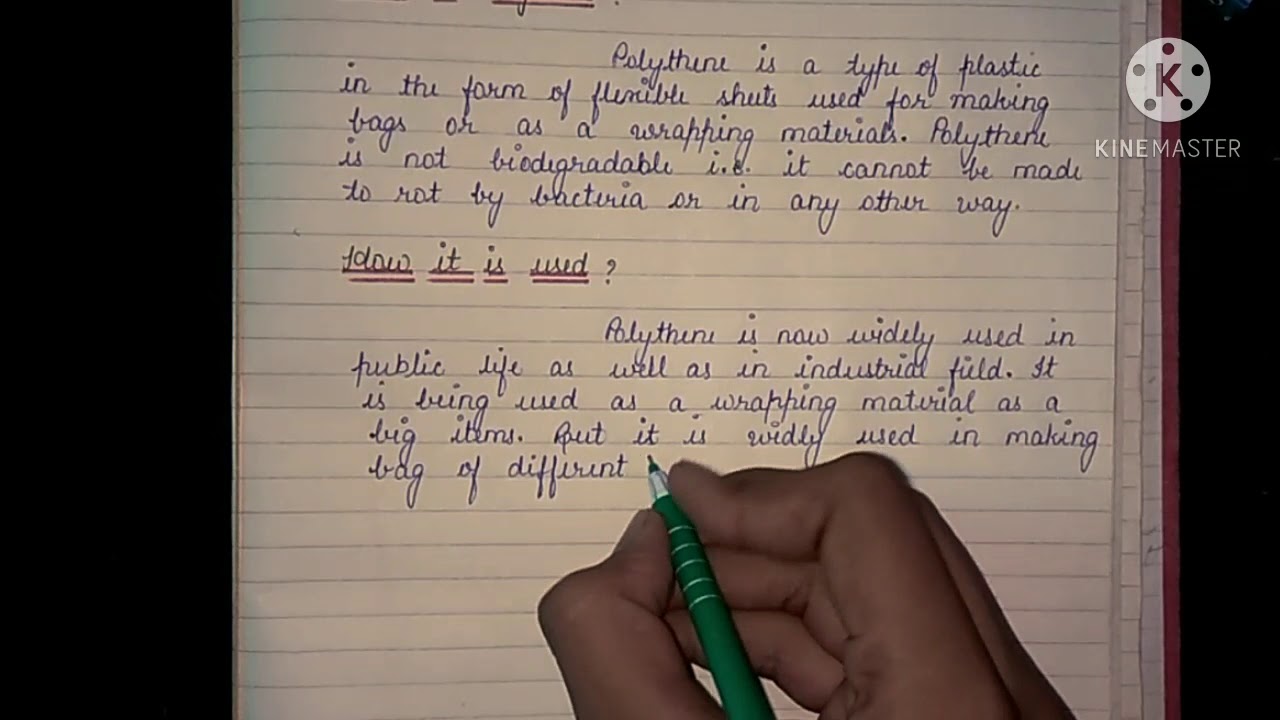 Polythene is a type of plastic
in the form of flexible sheets used for making
bags or as a wrapping materials. Polythene
is not biodegradable i.e. it cannot be made
to rot by bacteria or in any other way.
How it is used ?
Polythene is now widely used in
public life as well as in industrial field. It
is being used as a wrapping material as a
big items. But it is widly used in making
bag of different
K
KINEMASTER